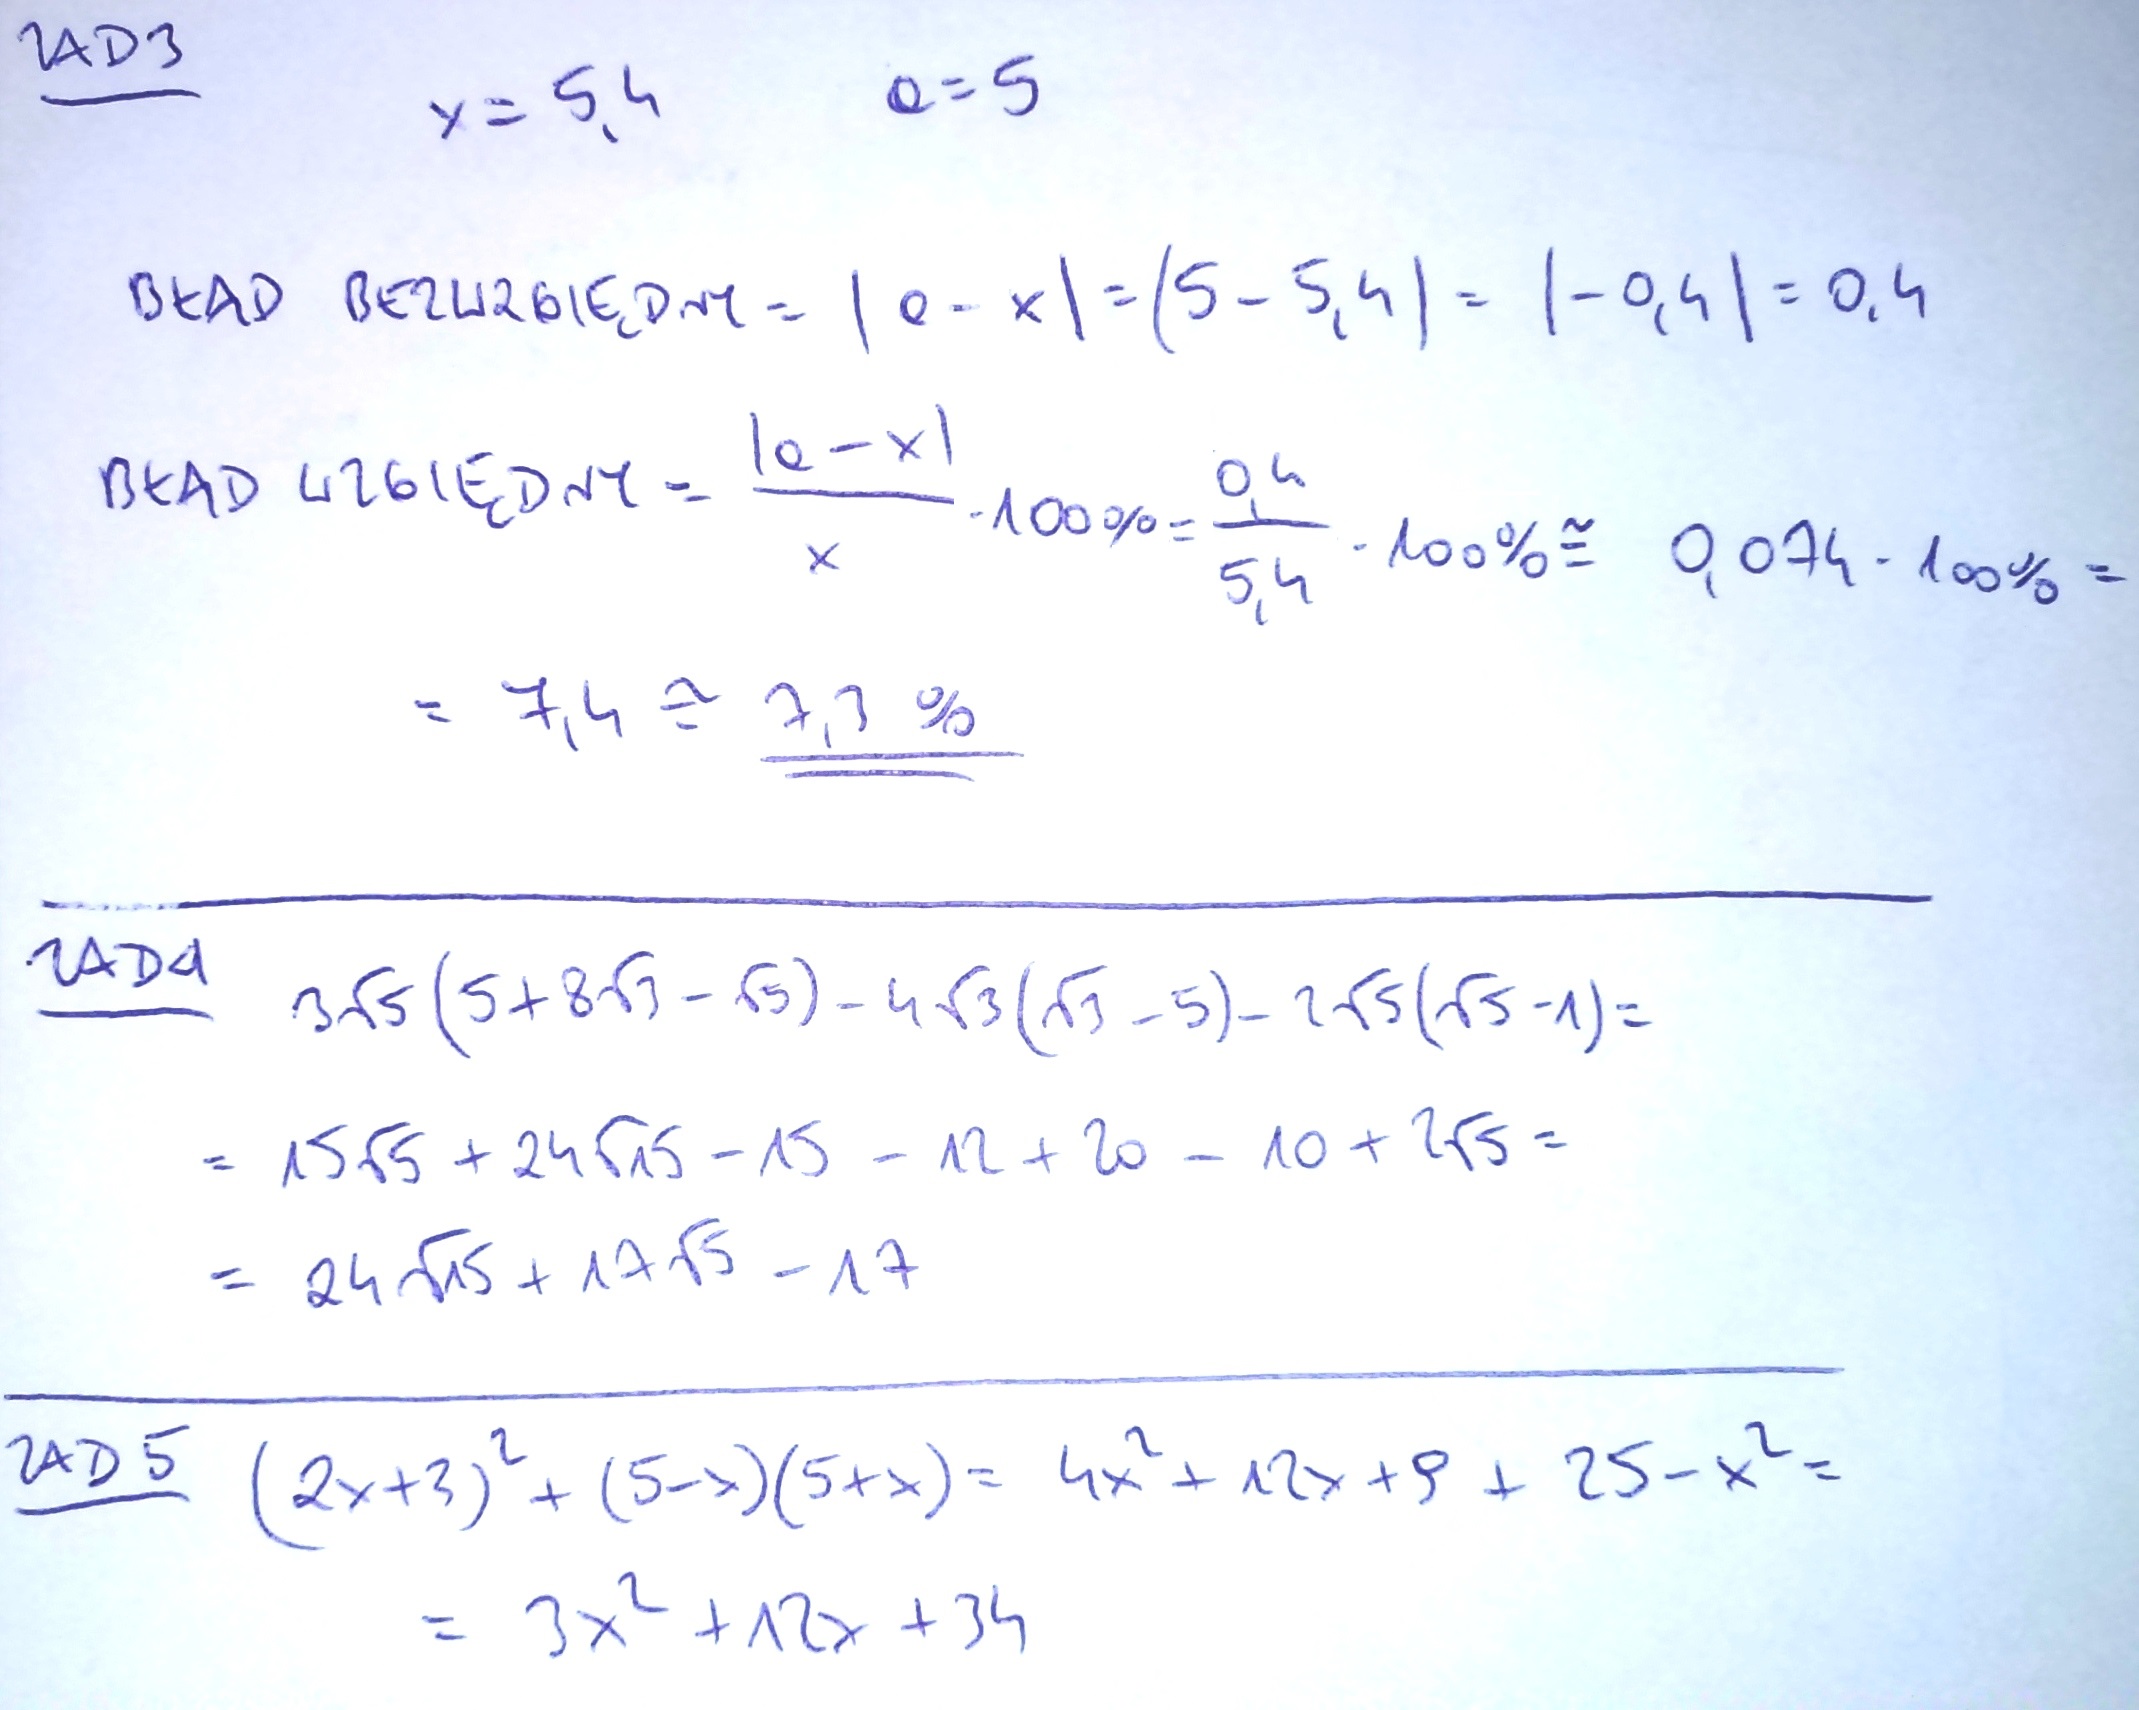 ZAD3
x = 5,4 a = 5
BŁĄD BEZWZGLĘDNY = |a - x| = |5 - 5,4| = |-0,4| = 0,4
BŁĄD WZGLĘDNY = |a-x|/x · 100% = 0,4/5,4 · 100% ≅ 0,074 · 100% =
= 7,4 ≅ 7,3 %
ZAD4 3√5(5+8√3-√5)-4√3(√3-5)-2√5(√5-1)=
= 15√5 + 24√15 - 15 - 12 + 20 - 10 + 2√5 =
= 24√15 + 17√5 - 17
ZAD5 (2x+3)² + (5-x)(5+x) = 4x² + 12x + 9 + 25 - x² =
= 3x² + 12x + 34